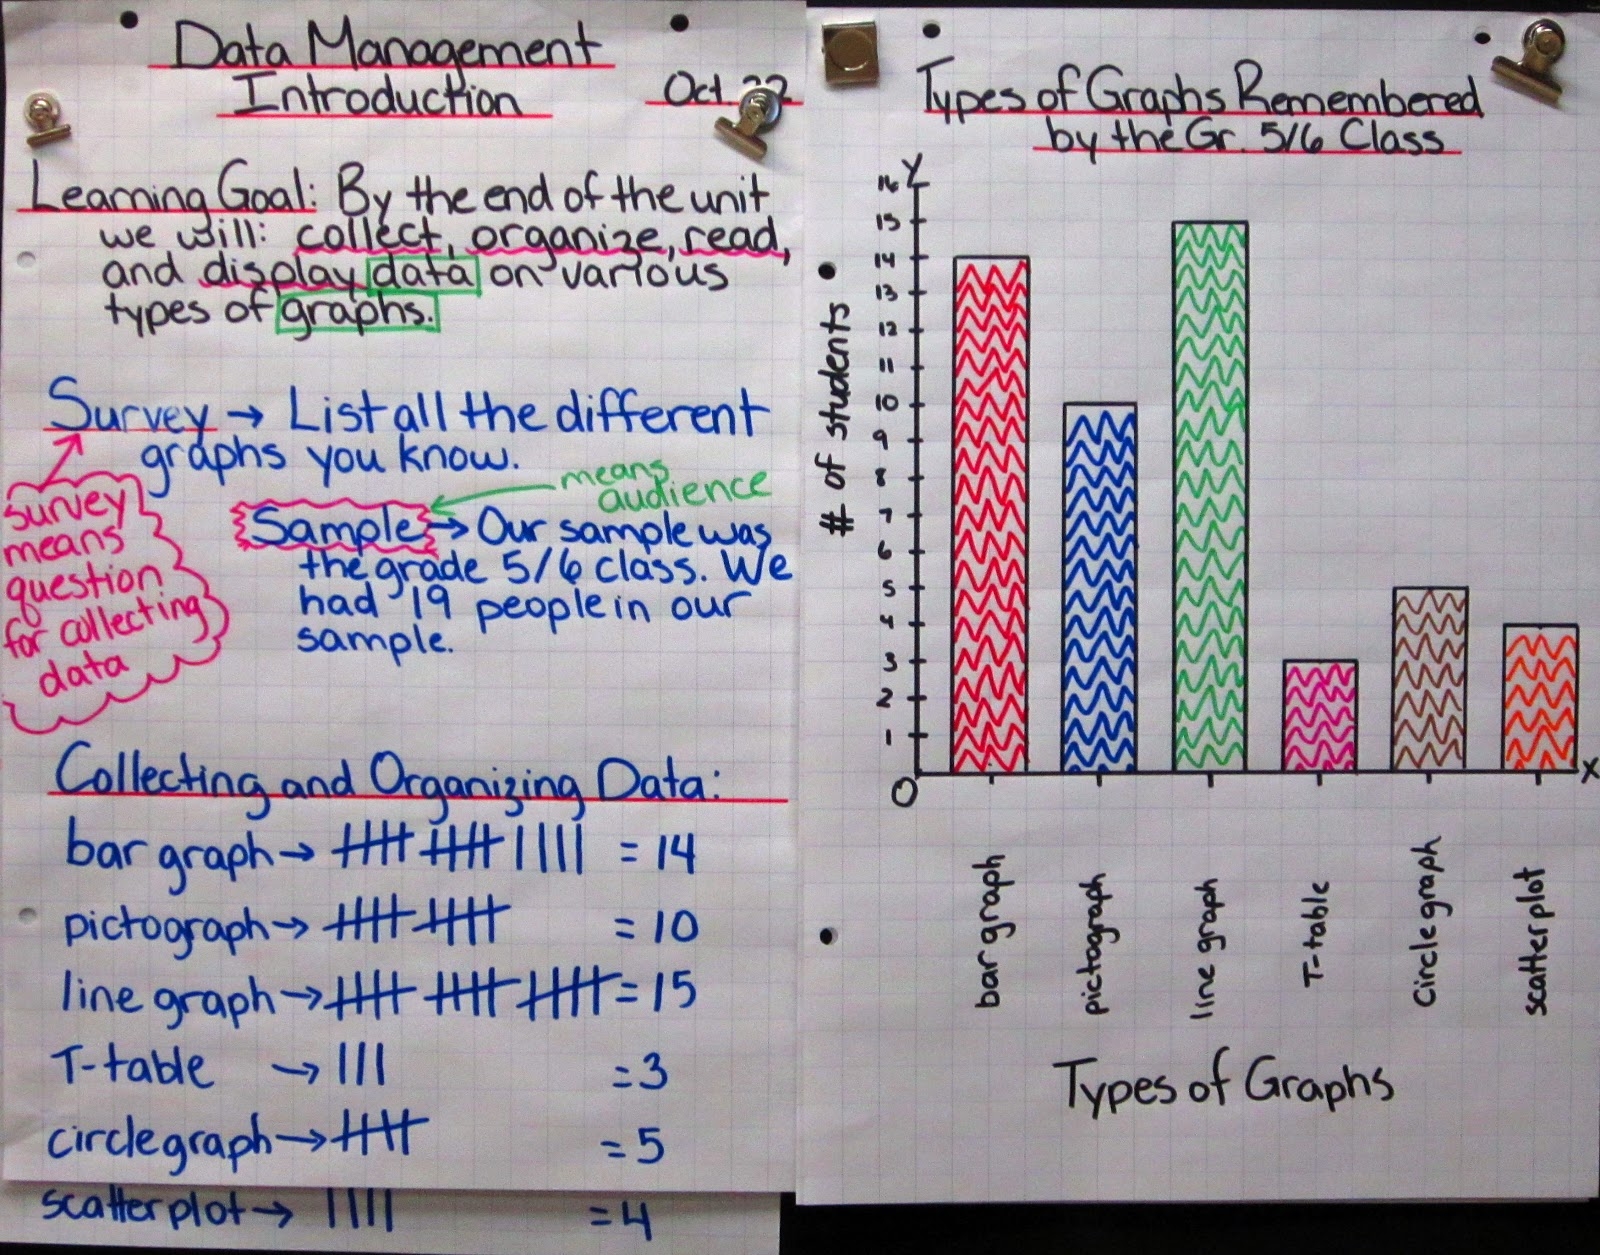 Data Management
Introduction
Oct 22
Learning Goal: By the end of the unit
we will: collect, organize, read,
and display data on various
types of graphs.
Survey → List all the different
graphs you know.
survey
means
question
for collecting
data
means
audience
Sample → Our sample was
the grade 5/6 class. We
had 19 people in our
sample.
Collecting and Organizing Data:
bar graph → 𝍸 𝍸 |||| = 14
pictograph → 𝍸 𝍸 = 10
line graph → 𝍸 𝍸 𝍸 = 15
T-table → ||| = 3
circle graph → 𝍸 = 5
scatter plot → |||| = 4
Types of Graphs Remembered
by the Gr. 5/6 Class
Y
16
15
14
13
12
11
10
9
8
7
6
5
4
3
2
1
0
X
# of students
bar graph
pictograph
line graph
T-table
Circle graph
scatter plot
Types of Graphs